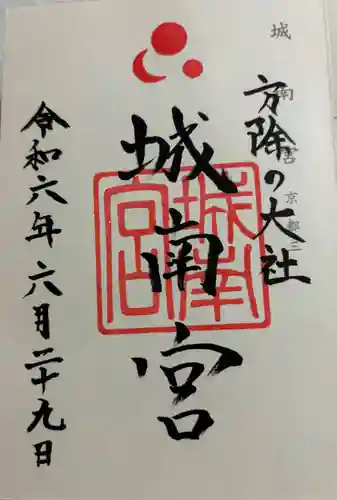 方除の大社
城南宮
京都
城南宮
令和六年六月二十九日
城南宮